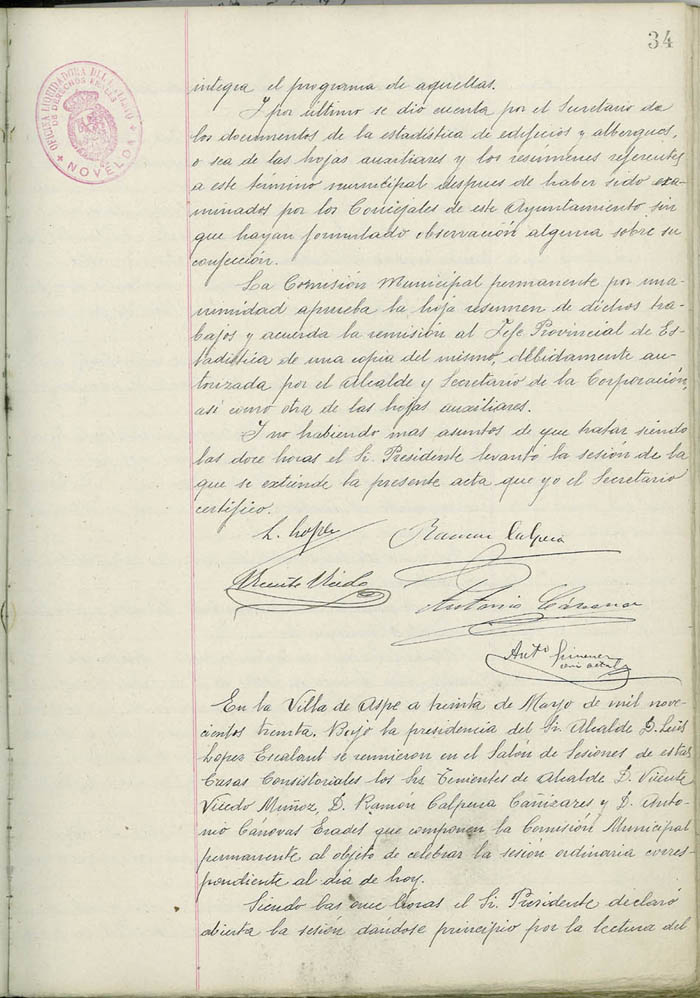 34
OFICINA LIQUIDADORA DEL
DE DERECHOS REALES
NOVELDA
integra el programa de aquellas.
Y por último se dio cuenta por el Secretario de
los documentos de la estadística de edificios y albergues,
o sea de las hojas auxiliares y los resúmenes referentes
a este término municipal despues de haber sido exa-
minados por los Concejales de este Ayuntamiento sin
que hayan formulado observación alguna sobre su
confección.
La Comisión Municipal permanente por una-
nimidad aprueba la hoja resumen de dichos tra-
bajos y acuerda la remisión al Jefe Provincial de Es-
tadística de una copia del mismo, débidamente au-
torizada por el Alcalde y Secretario de la Corporación,
así como otra de las hojas auxiliares.
Y no habiendo mas asuntos de que tratar siendo
las doce horas el Sr. Presidente levantó la sesión de la
que se extiende la presente acta que yo el Secretario
certifico.
L. López Ramon Calpena
Vicente Vicedo
Antonio Cánovas
Antº Gimenez
En la Villa de Aspe a treinta de Marzo de mil nove-
cientos treinta. Bajo la presidencia del Sr. Alcalde D. Luis
López Escalant se reunieron en el Salón de Sesiones de estas
Casas Consistoriales los Srs Tenientes de Alcalde D. Vicente
Vicedo Muñoz, D. Ramón Calpena Cañizares y D. Anto-
nio Cánovas Erades que componen la Comisión Municipal
permanente al objeto de celebrar la sesión ordinaria corres-
pondiente al dia de hoy.
Siendo las once horas el Sr. Presidente declaró
abierta la sesión dándose principio por la lectura del